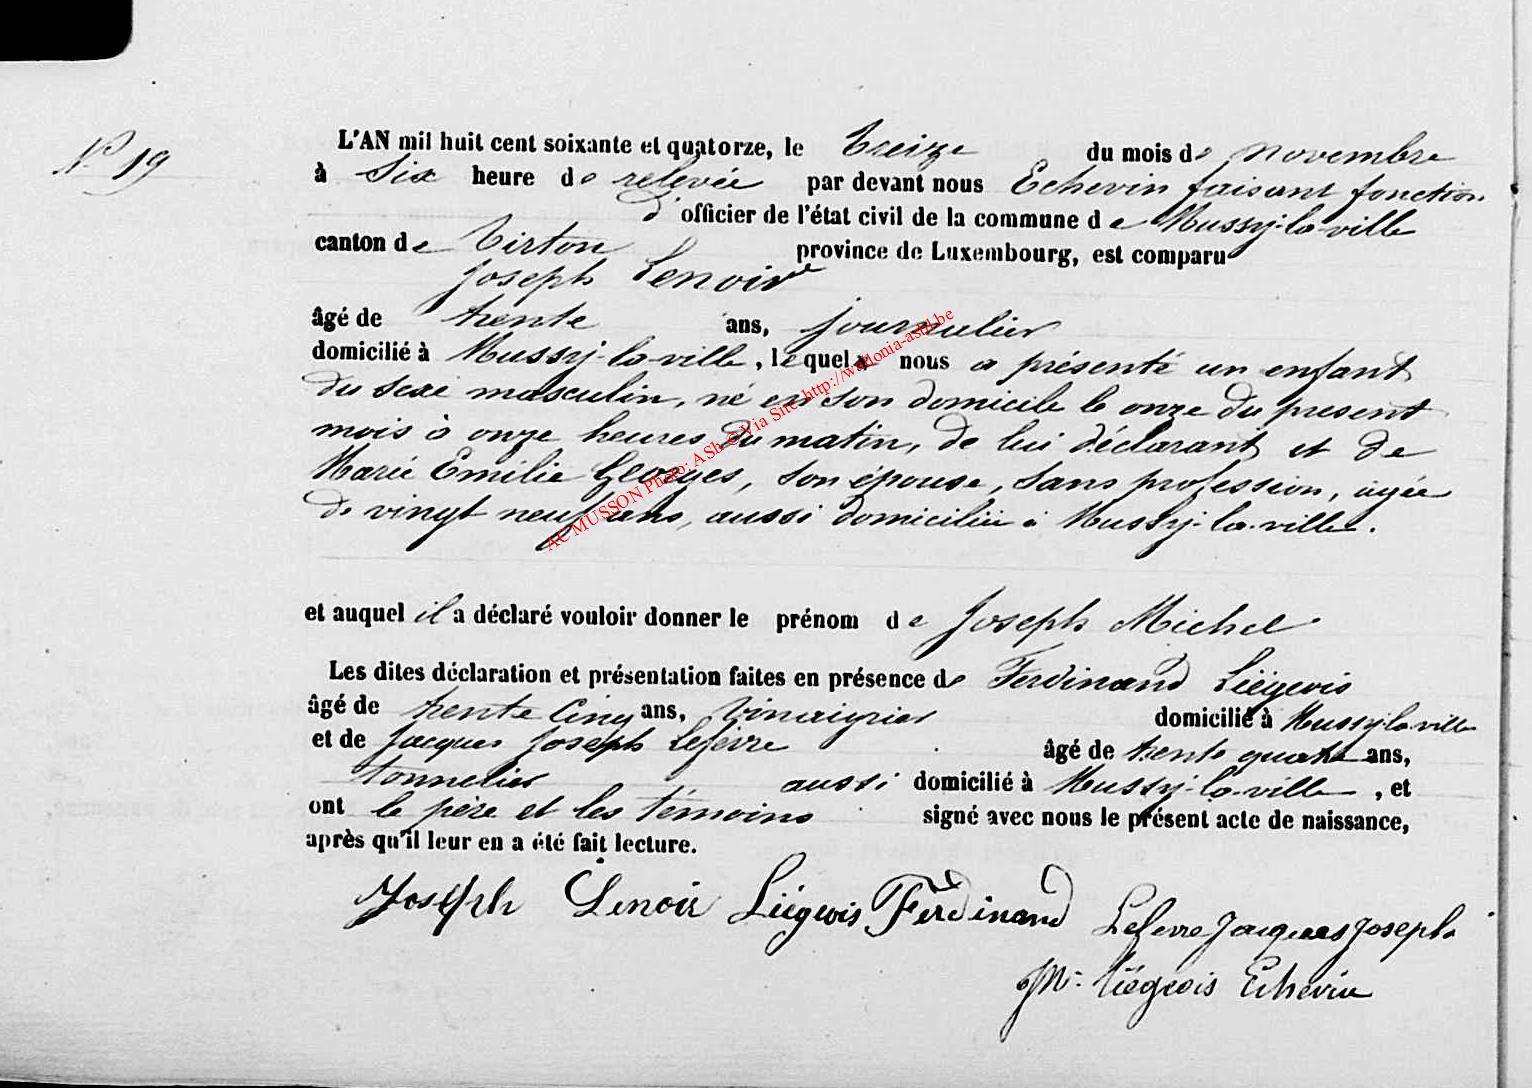 N° 19
L'AN mil huit cent soixante et quatorze, le treize du mois de novembre
à six heure de relevée par devant nous Echevin faisant fonction
d'officier de l'état civil de la commune de Mussy-la-ville
canton de Virton province de Luxembourg, est comparu
Joseph Lenoir
âgé de trente ans, journalier
domicilié à Mussy-la-ville, lequel nous a présenté un enfant
du sexe masculin, né en son domicile le onze du present
mois à onze heures du matin, de lui déclarant et de
Marie Emilie Georges, son épouse, sans profession, agée
de vingt neuf ans, aussi domiciliée à Mussy-la-ville.
et auquel il a déclaré vouloir donner le prénom de Joseph Michel
Les dites déclaration et présentation faites en présence de Ferdinand Liégeois
âgé de trente cinq ans, vinaigrier domicilié à Mussy-la-ville
et de Jacques Joseph Lefèvre âgé de trente quatre ans,
tonnelier aussi domicilié à Mussy-la-ville, et
ont le père et les témoins signé avec nous le présent acte de naissance,
après qu'il leur en a été fait lecture.
Joseph Lenoir Liégeois Ferdinand Lefevre Jacques Joseph
Liégeois Echevin
AC MUSSON Photo: ASh © Via Site http://wallonia-asbl.be